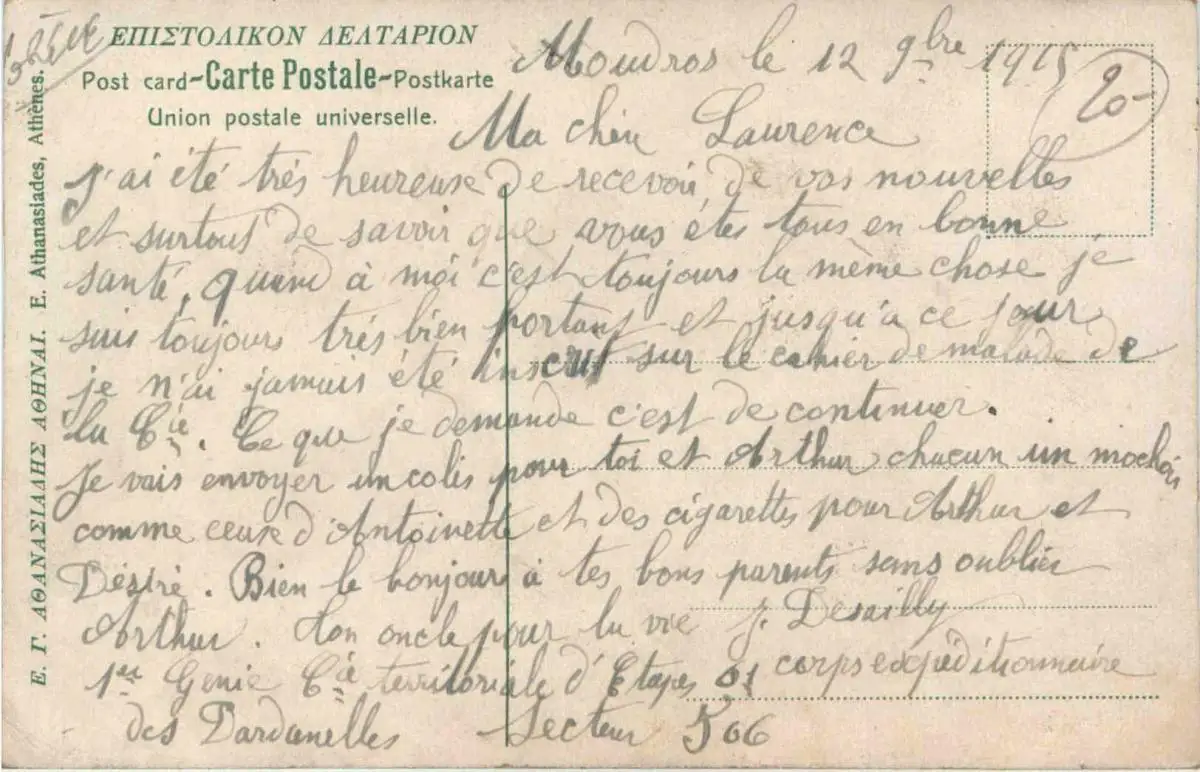 ΕΠΙΣΤΟΛΙΚΟΝ ΔΕΛΤΑΡΙΟΝ
Post card-Carte Postale-Postkarte
Union postale universelle.
Ε. Γ. ΑΘΑΝΑΣΙΑΔΗΣ ΑΘΗΝΑΙ. E. Athanasiades, Athènes.
20-
Moudros le 12 9bre 1915
Ma chère Laurence
J'ai été très heureuse de recevoir de vos nouvelles
et surtout de savoir que vous êtes tous en bonne
santé, quand à moi c'est toujours la même chose je
suis toujours très bien portant et jusqu'à ce jour
je n'ai jamais été inscrit sur le cahier de malade de
la Cie. Ce que je demande c'est de continuer.
Je vais envoyer un colis pour toi et Arthur chacun un mochoir
comme ceuse d'Antoinette et des cigarettes pour Arthur et
Désiré. Bien le bonjour à tes bons parents sans oublier
Arthur. Ton oncle pour la vie J. Desailly
1er Genie Cie territoriale d'Etapes 01 corps expéditionnaire
des Dardanelles Secteur 506